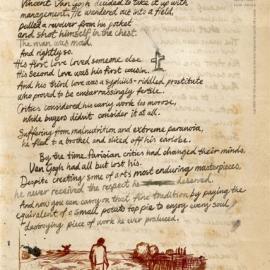 Vincent Van Gogh decided to take it up with
management. He wandered out into a field,
pulled a revolver from his pocket
and shot himself in the chest.
The man was mad.
And rightly so.
His first love loved someone else.
His second love was his first cousin.
And his third love was a syphilis-riddled prostitute
who proved to be embarrassingly fertile.
Critics considered his early work too morose,
while buyers didn't consider it at all.
Suffering from malnutrition and extreme paranoia,
he fled to a brothel and sliced off his earlobe.
By the time Parisian critics had changed their minds,
Van Gogh had all but lost his.
Despite creating some of art's most enduring masterpieces,
he never received the respect he deserved.
And now you can carry on that fine tradition by paying the
equivalent of a small potato top pie to enjoy every soul
destroying piece of work he ever produced.